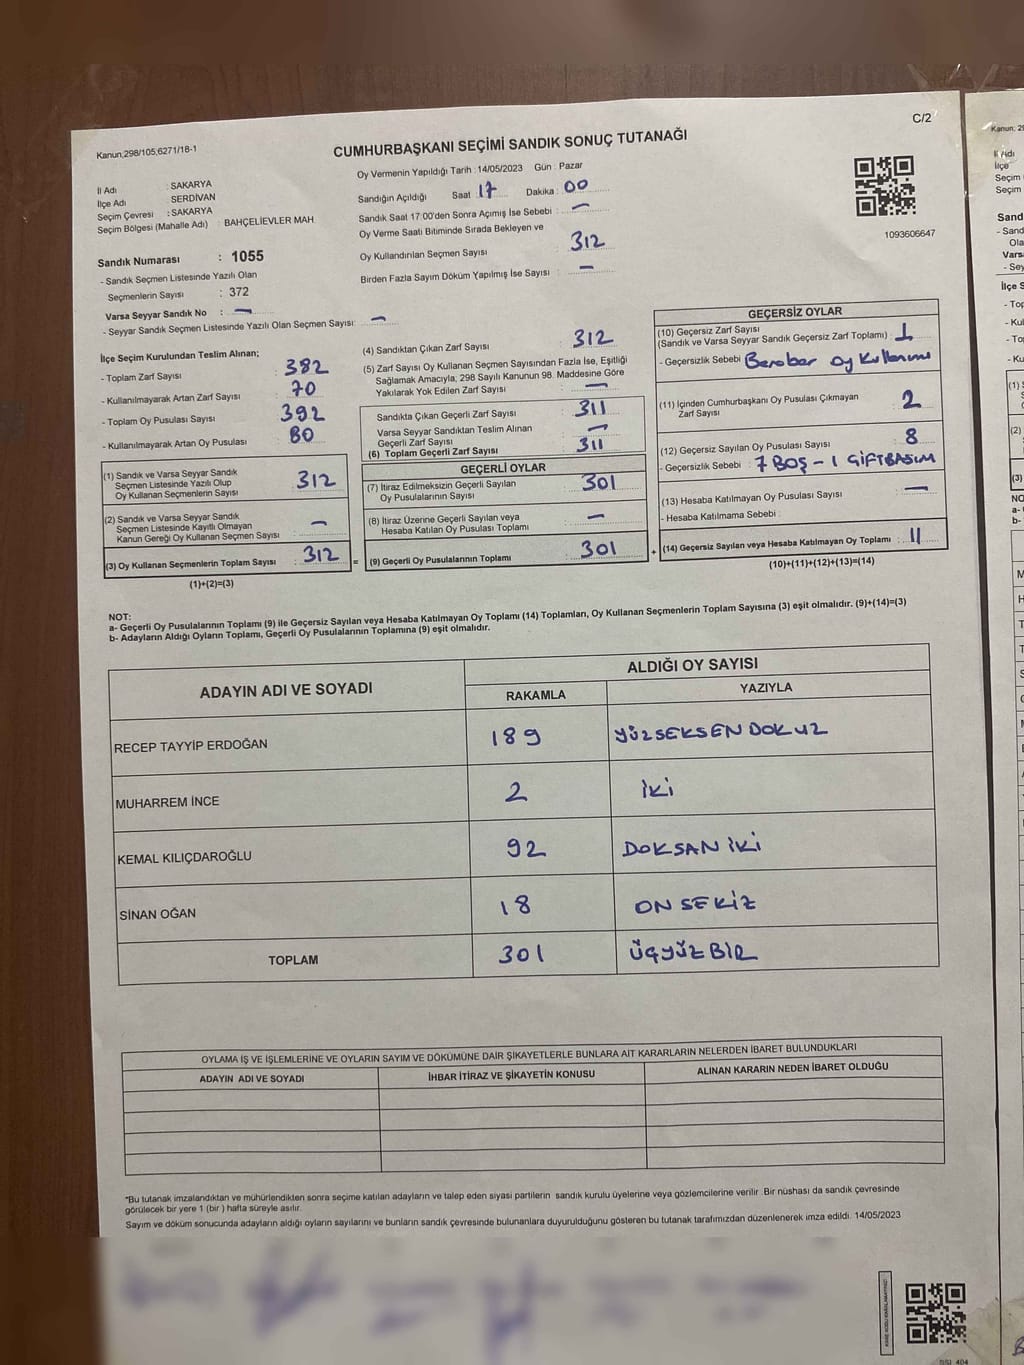 C/2
Kanun,298/105,6271/18-1
CUMHURBAŞKANI SEÇİMİ SANDIK SONUÇ TUTANAĞI
Oy Vermenin Yapıldığı Tarih :14/05/2023 Gün : Pazar
İl Adı : SAKARYA
İlçe Adı SERDİVAN
Seçim Çevresi : SAKARYA
Seçim Bölgesi (Mahalle Adı) : BAHÇELİEVLER MAH
Sandığın Açıldığı Saat 17 Dakika : 00
Sandık Saat 17:00'den Sonra Açımış İse Sebebi : —
Oy Verme Saati Bitiminde Sırada Bekleyen ve
Oy Kullandırılan Seçmen Sayısı 312
Birden Fazla Sayım Döküm Yapılmış İse Sayısı : —
1093606647
Sandık Numarası : 1055
- Sandık Seçmen Listesinde Yazılı Olan
Seçmenlerin Sayısı : 372
Varsa Seyyar Sandık No : —
- Seyyar Sandık Seçmen Listesinde Yazılı Olan Seçmen Sayısı: —
İlçe Seçim Kurulundan Teslim Alınan;
- Toplam Zarf Sayısı : 382
- Kullanılmayarak Artan Zarf Sayısı : 70
- Toplam Oy Pusulası Sayısı : 392
- Kullanılmayarak Artan Oy Pusulası : 80
(1) Sandık ve Varsa Seyyar Sandık
Seçmen Listesinde Yazılı Olup
Oy Kullanan Seçmenlerin Sayısı : 312
(2) Sandık ve Varsa Seyyar Sandık
Seçmen Listesinde Kayıtlı Olmayan
Kanun Gereği Oy Kullanan Seçmen Sayısı : —
(3) Oy Kullanan Seçmenlerin Toplam Sayısı : 312
(1)+(2)=(3)
(4) Sandıktan Çıkan Zarf Sayısı : 312
(5) Zarf Sayısı Oy Kullanan Seçmen Sayısından Fazla İse, Eşitliği
Sağlamak Amacıyla; 298 Sayılı Kanunun 98. Maddesine Göre
Yakılarak Yok Edilen Zarf Sayısı : —
Sandıkta Çıkan Geçerli Zarf Sayısı : 311
Varsa Seyyar Sandıktan Teslim Alınan
Geçerli Zarf Sayısı : —
(6) Toplam Geçerli Zarf Sayısı : 311
GEÇERLİ OYLAR
(7) İtiraz Edilmeksizin Geçerli Sayılan
Oy Pusulalarının Sayısı : 301
(8) İtiraz Üzerine Geçerli Sayılan veya
Hesaba Katılan Oy Pusulası Toplamı : —
= (9) Geçerli Oy Pusulalarının Toplamı : 301
GEÇERSİZ OYLAR
(10) Geçersiz Zarf Sayısı
(Sandık ve Varsa Seyyar Sandık Geçersiz Zarf Toplamı) : 1
- Geçersizlik Sebebi : Beraber oy kullanımı
(11) İçinden Cumhurbaşkanı Oy Pusulası Çıkmayan
Zarf Sayısı : 2
(12) Geçersiz Sayılan Oy Pusulası Sayısı : 8
- Geçersizlik Sebebi : 7 BOŞ - 1 ÇİFTBASIM
(13) Hesaba Katılmayan Oy Pusulası Sayısı : —
- Hesaba Katılmama Sebebi :
+ (14) Geçersiz Sayılan veya Hesaba Katılmayan Oy Toplamı : 11
(10)+(11)+(12)+(13)=(14)
NOT:
a- Geçerli Oy Pusulalarının Toplamı (9) ile Geçersiz Sayılan veya Hesaba Katılmayan Oy Toplamı (14) Toplamları, Oy Kullanan Seçmenlerin Toplam Sayısına (3) eşit olmalıdır. (9)+(14)=(3)
b- Adayların Aldığı Oyların Toplamı, Geçerli Oy Pusulalarının Toplamına (9) eşit olmalıdır.
ADAYIN ADI VE SOYADI ALDIĞI OY SAYISI
RAKAMLA YAZIYLA
RECEP TAYYİP ERDOĞAN 189 YÜZSEKSENDOKUZ
MUHARREM İNCE 2 İKİ
KEMAL KILIÇDAROĞLU 92 DOKSAN İKİ
SİNAN OĞAN 18 ON SEKİZ
TOPLAM 301 ÜÇYÜZ BİR
OYLAMA İŞ VE İŞLEMLERİNE VE OYLARIN SAYIM VE DÖKÜMÜNE DAİR ŞİKAYETLERLE BUNLARA AİT KARARLARIN NELERDEN İBARET BULUNDUKLARI
ADAYIN ADI VE SOYADI İHBAR İTİRAZ VE ŞİKAYETİN KONUSU ALINAN KARARIN NEDEN İBARET OLDUĞU
*Bu tutanak imzalandıktan ve mühürlendikten sonra seçime katılan adayların ve talep eden siyasi partilerin sandık kurulu üyelerine veya gözlemcilerine verilir .Bir nüshası da sandık çevresinde
görülecek bir yere 1 (bir ) hafta süreyle asılır.
Sayım ve döküm sonucunda adayların aldığı oyların sayılarını ve bunların sandık çevresinde bulunanlara duyurulduğunu gösteren bu tutanak tarafımızdan düzenlenerek imza edildi. 14/05/2023